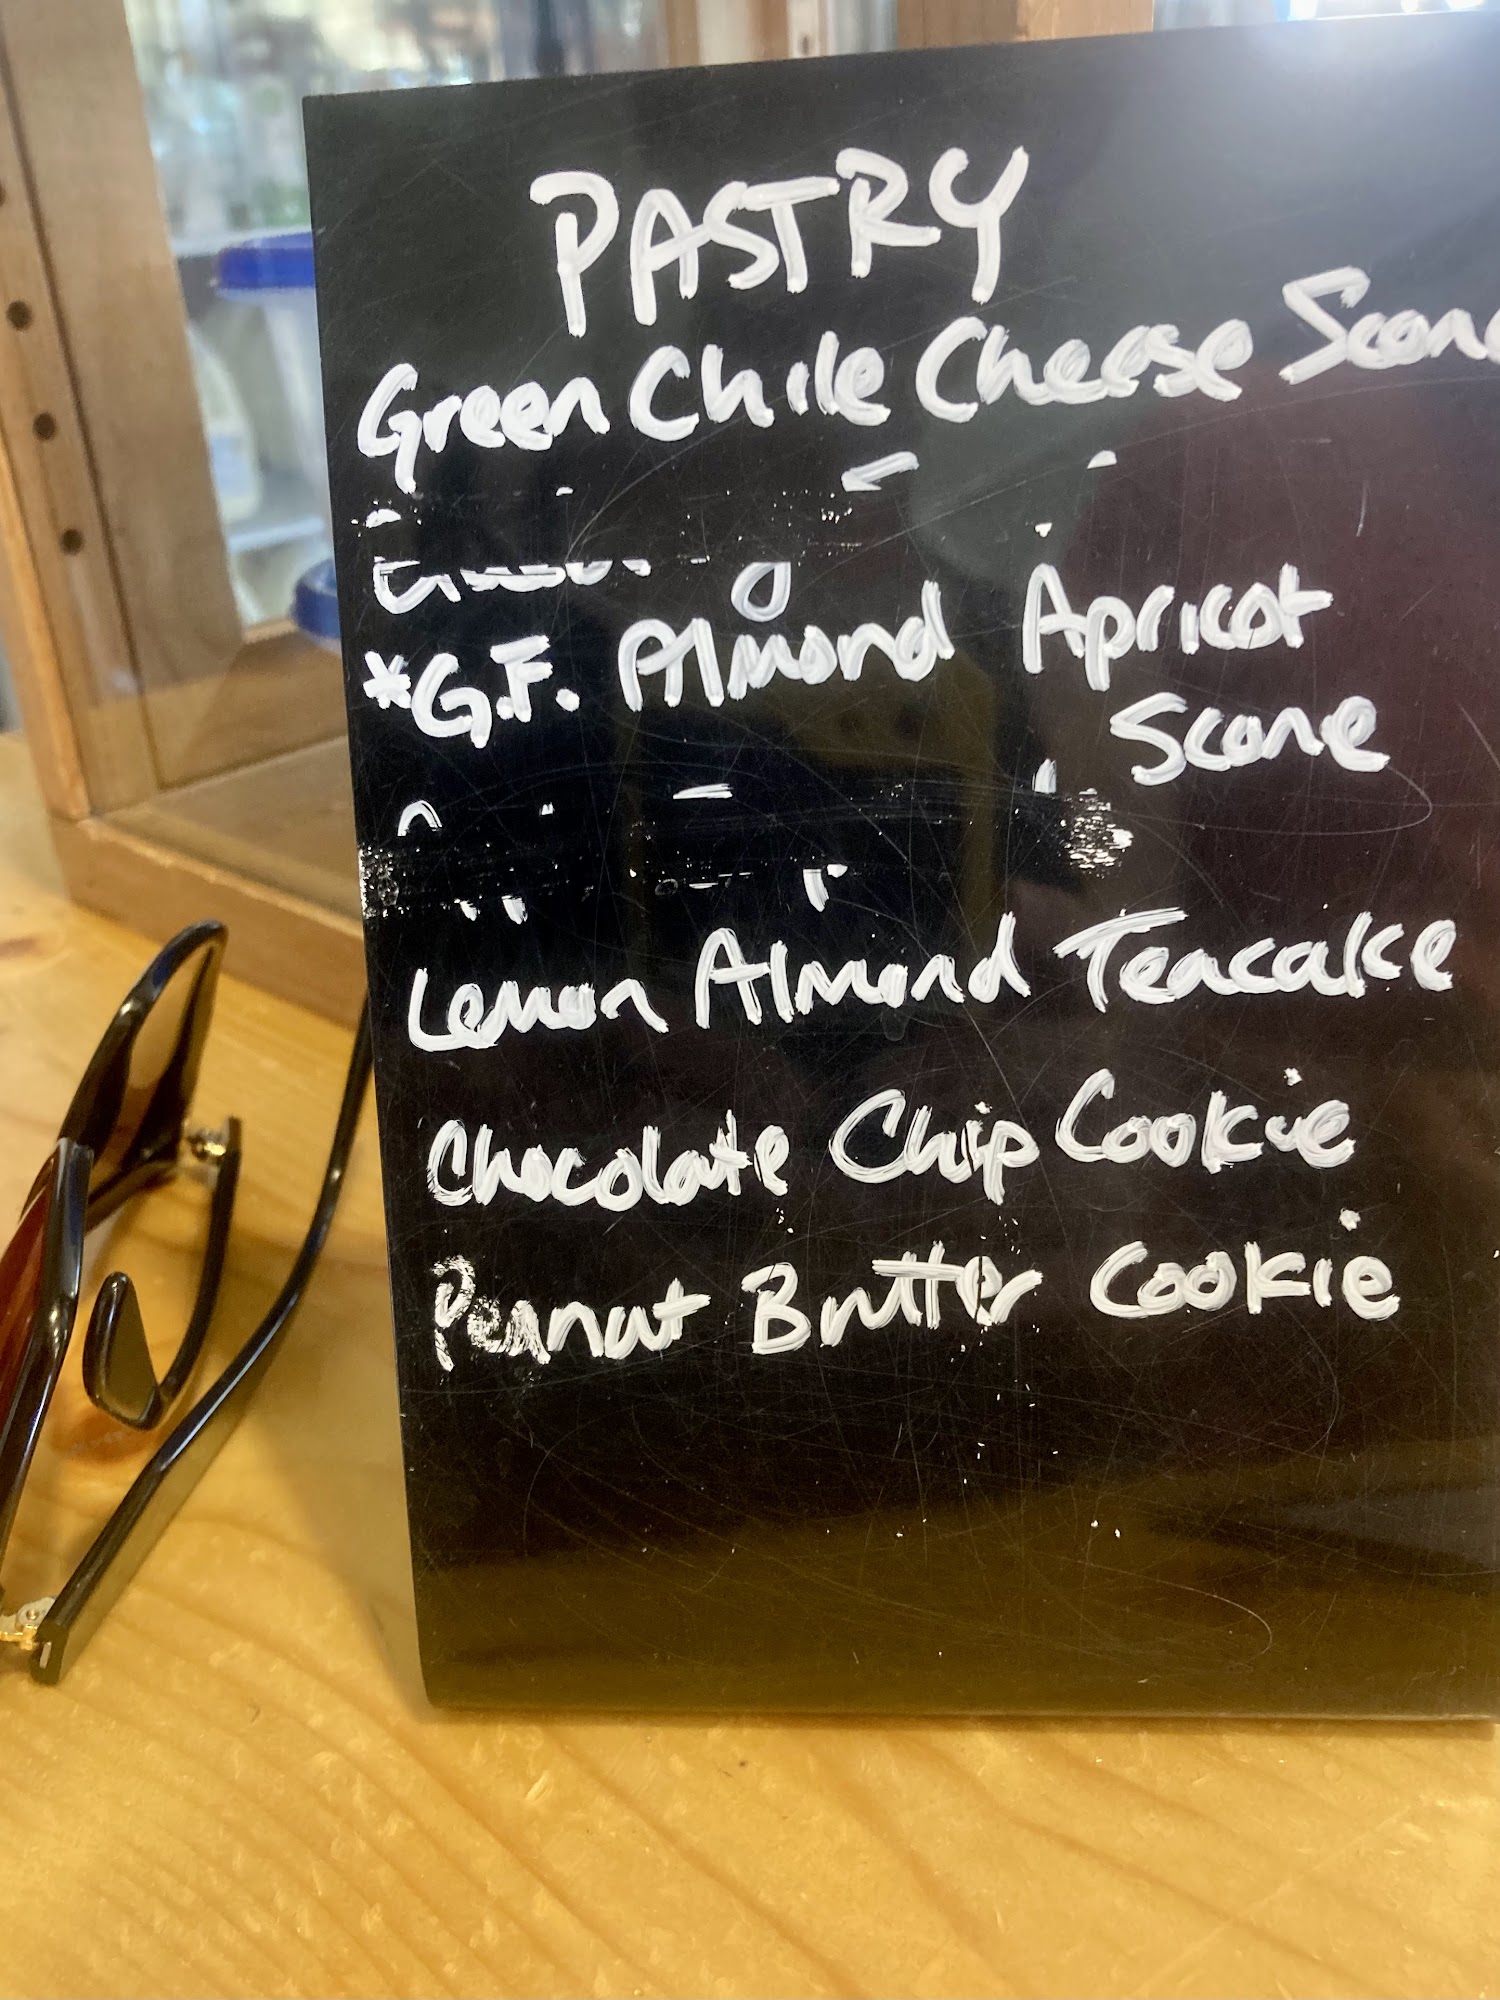 PASTRY
Green Chile Cheese Scone
*G.F. Almond Apricot
Scone
Lemon Almond Teacake
Chocolate Chip Cookie
Peanut Butter Cookie